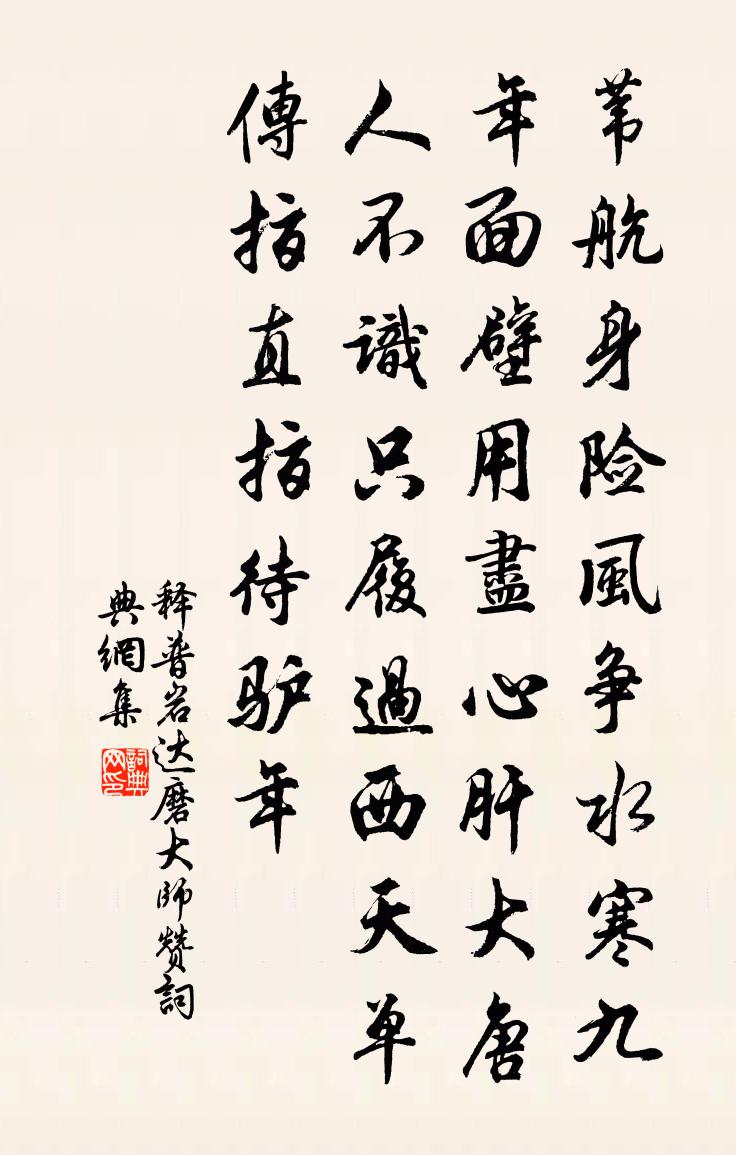 苇航身险風争水寒九
年面壁用盡心肝大唐
人不識只履過西天单
傳指直指待驴年
释普岩达磨大师赞詞
典網集
詞典
网印